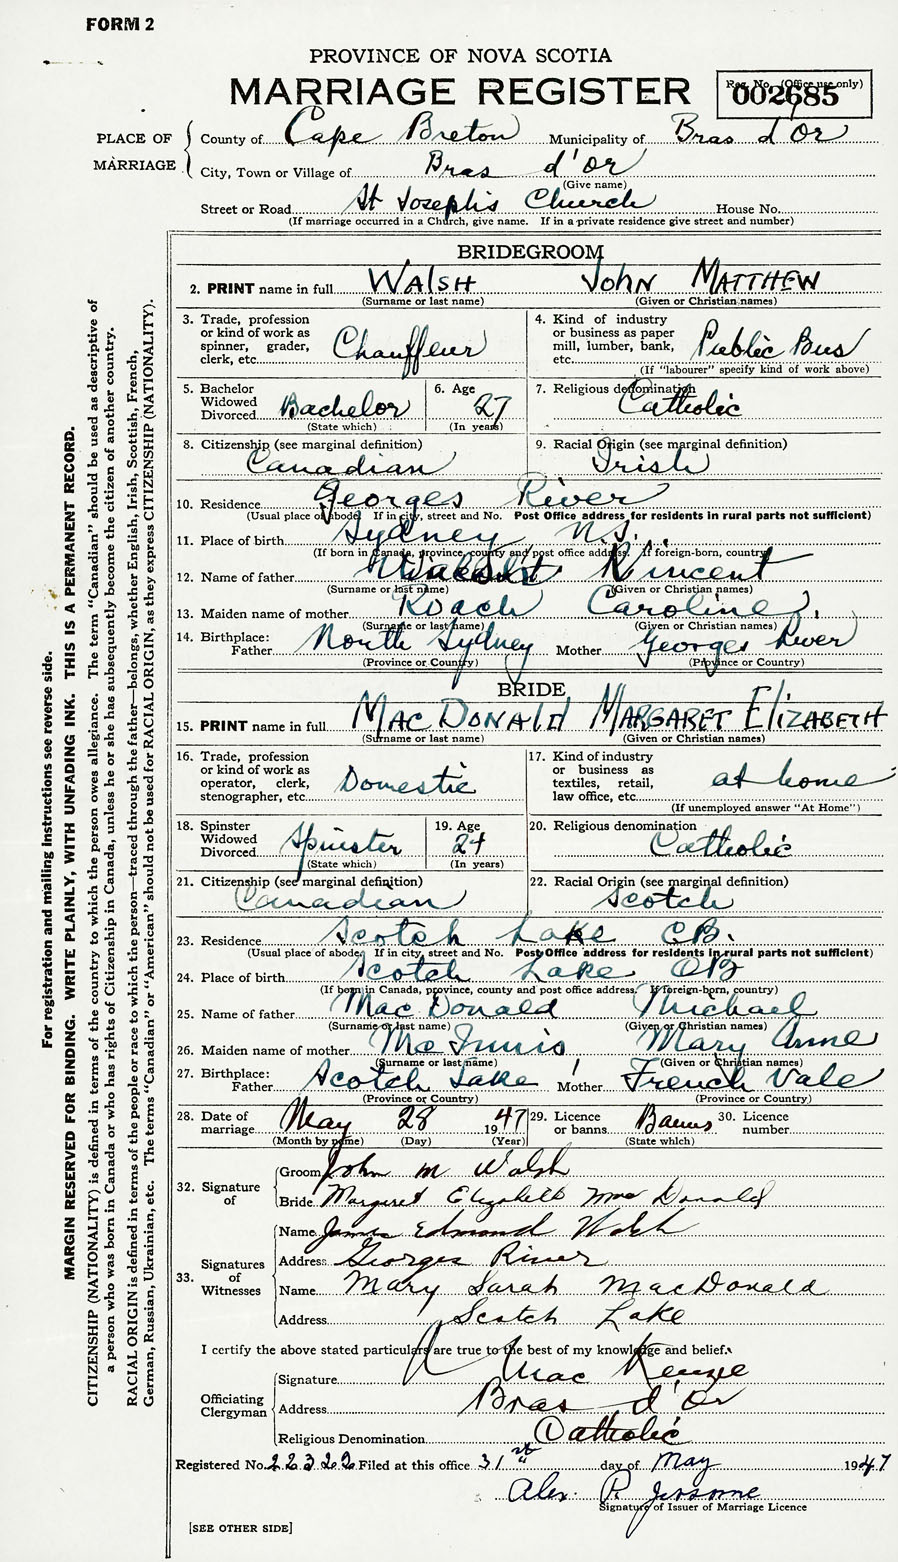 FORM 2
PROVINCE OF NOVA SCOTIA
MARRIAGE REGISTER
Reg. No. (Office use only)
002685
PLACE OF MARRIAGE
County of Cape Breton Municipality of Bras d'Or
City, Town or Village of Bras d'Or
(Give name)
Street or Road St Joseph's Church House No.
(If marriage occurred in a Church, give name. If in a private residence give street and number)
BRIDEGROOM
2. PRINT name in full WALSH JOHN MATTHEW
(Surname or last name) (Given or Christian names)
3. Trade, profession or kind of work as spinner, grader, clerk, etc. Chauffeur
4. Kind of industry or business as paper mill, lumber, bank, etc. Public Bus
(If "labourer" specify kind of work above)
5. Bachelor Widowed Divorced Bachelor
(State which)
6. Age 27
(In years)
7. Religious denomination Catholic
8. Citizenship (see marginal definition) Canadian
9. Racial Origin (see marginal definition) Irish
10. Residence Georges River
(Usual place of abode. If in city, street and No. Post Office address for residents in rural parts not sufficient)
11. Place of birth Sydney N.S.
(If born in Canada, province, county and post office address. If foreign-born, country)
12. Name of father Vincent
(Surname or last name) (Given or Christian names)
13. Maiden name of mother Roach Caroline
(Surname or last name) (Given or Christian names)
14. Birthplace: Father North Sydney Mother Georges River
(Province or Country) (Province or Country)
BRIDE
15. PRINT name in full MAC DONALD MARGARET ELIZABETH
(Surname or last name) (Given or Christian names)
16. Trade, profession or kind of work as operator, clerk, stenographer, etc. Domestic
17. Kind of industry or business as textiles, retail, law office, etc. at home
(If unemployed answer "At Home")
18. Spinster Widowed Divorced Spinster
(State which)
19. Age 24
(In years)
20. Religious denomination Catholic
21. Citizenship (see marginal definition) Canadian
22. Racial Origin (see marginal definition) Scotch
23. Residence Scotch Lake C.B.
(Usual place of abode. If in city, street and No. Post Office address for residents in rural parts not sufficient)
24. Place of birth Scotch Lake CB
(If born in Canada, province, county and post office address. If foreign-born, country)
25. Name of father Mac Donald Michael
(Surname or last name) (Given or Christian names)
26. Maiden name of mother Mc Innis Mary Anne
(Surname or last name) (Given or Christian names)
27. Birthplace: Father Scotch Lake Mother French Vale
(Province or Country) (Province or Country)
28. Date of marriage May 28 1947
(Month by name) (Day) (Year)
29. Licence or banns Banns
(State which)
30. Licence number
32. Signature of
Groom John M Walsh
Bride Margaret Elizabeth Mac Donald
33. Signatures of Witnesses
Name James Edmond Walsh
Address Georges River
Name Mary Sarah MacDonald
Address Scotch Lake
I certify the above stated particulars are true to the best of my knowledge and belief.
Officiating Clergyman
Signature Mac Kenzie
Address Bras d'Or
Religious Denomination Catholic
Registered No. Filed at this office 31st day of May 1947
Alex. P. Jessome
Signature of Issuer of Marriage Licence
[SEE OTHER SIDE]
For registration and mailing instructions see reverse side.
MARGIN RESERVED FOR BINDING. WRITE PLAINLY, WITH UNFADING INK. THIS IS A PERMANENT RECORD.
CITIZENSHIP (NATIONALITY) is defined in terms of the country to which the person owes allegiance. The term "Canadian" should be used as descriptive of
a person who was born in Canada or who has rights of Citizenship in Canada, unless he or she has subsequently become the citizen of another country.
RACIAL ORIGIN is defined in terms of the people or race to which the person—traced through the father—belongs, whether English, Irish, Scottish, French,
German, Russian, Ukrainian, etc. The terms "Canadian" or "American" should not be used for RACIAL ORIGIN, as they express CITIZENSHIP (NATIONALITY).